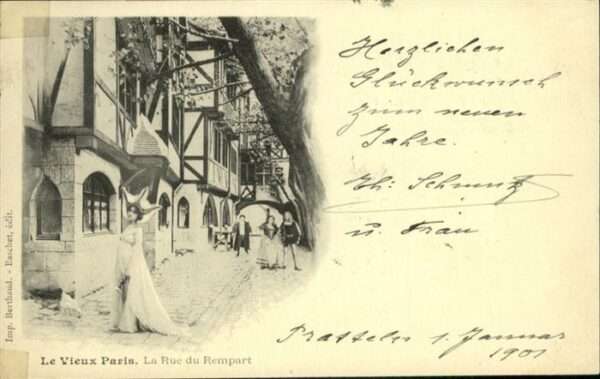 Herzlichen
Glückwunsch
zum neuen
Jahre.
Th: Schmutz
u. Frau
Pratteln 1. Januar
1901
Imp. Berthaud. - Raschet, édit.
Le Vieux Paris. La Rue du Rempart